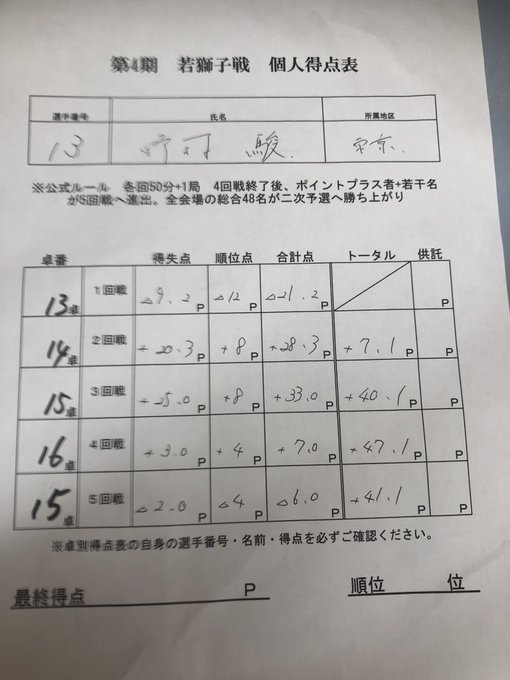 第4期 若獅子戦 個人得点表
選手番号 氏名 所属地区
13 駿 東京
※公式ルール 各回50分+1局 4回戦終了後、ポイントプラス者+若干名
が5回戦へ進出。全会場の総合48名が二次予選へ勝ち上がり
卓番 得失点 順位点 合計点 トータル 供託
13卓 1回戦 △9.2P △12P △21.2P P
14卓 2回戦 +20.3P +8P +28.3P +7.1P P
15卓 3回戦 +25.0P +8P +33.0P +40.1P P
16卓 4回戦 +3.0P +4P +7.0P +47.1P P
15卓 5回戦 △2.0P △4P △6.0P +41.1P P
※卓別得点表の自身の選手番号・名前・得点を必ずご確認ください。
最終得点 P 順位 位